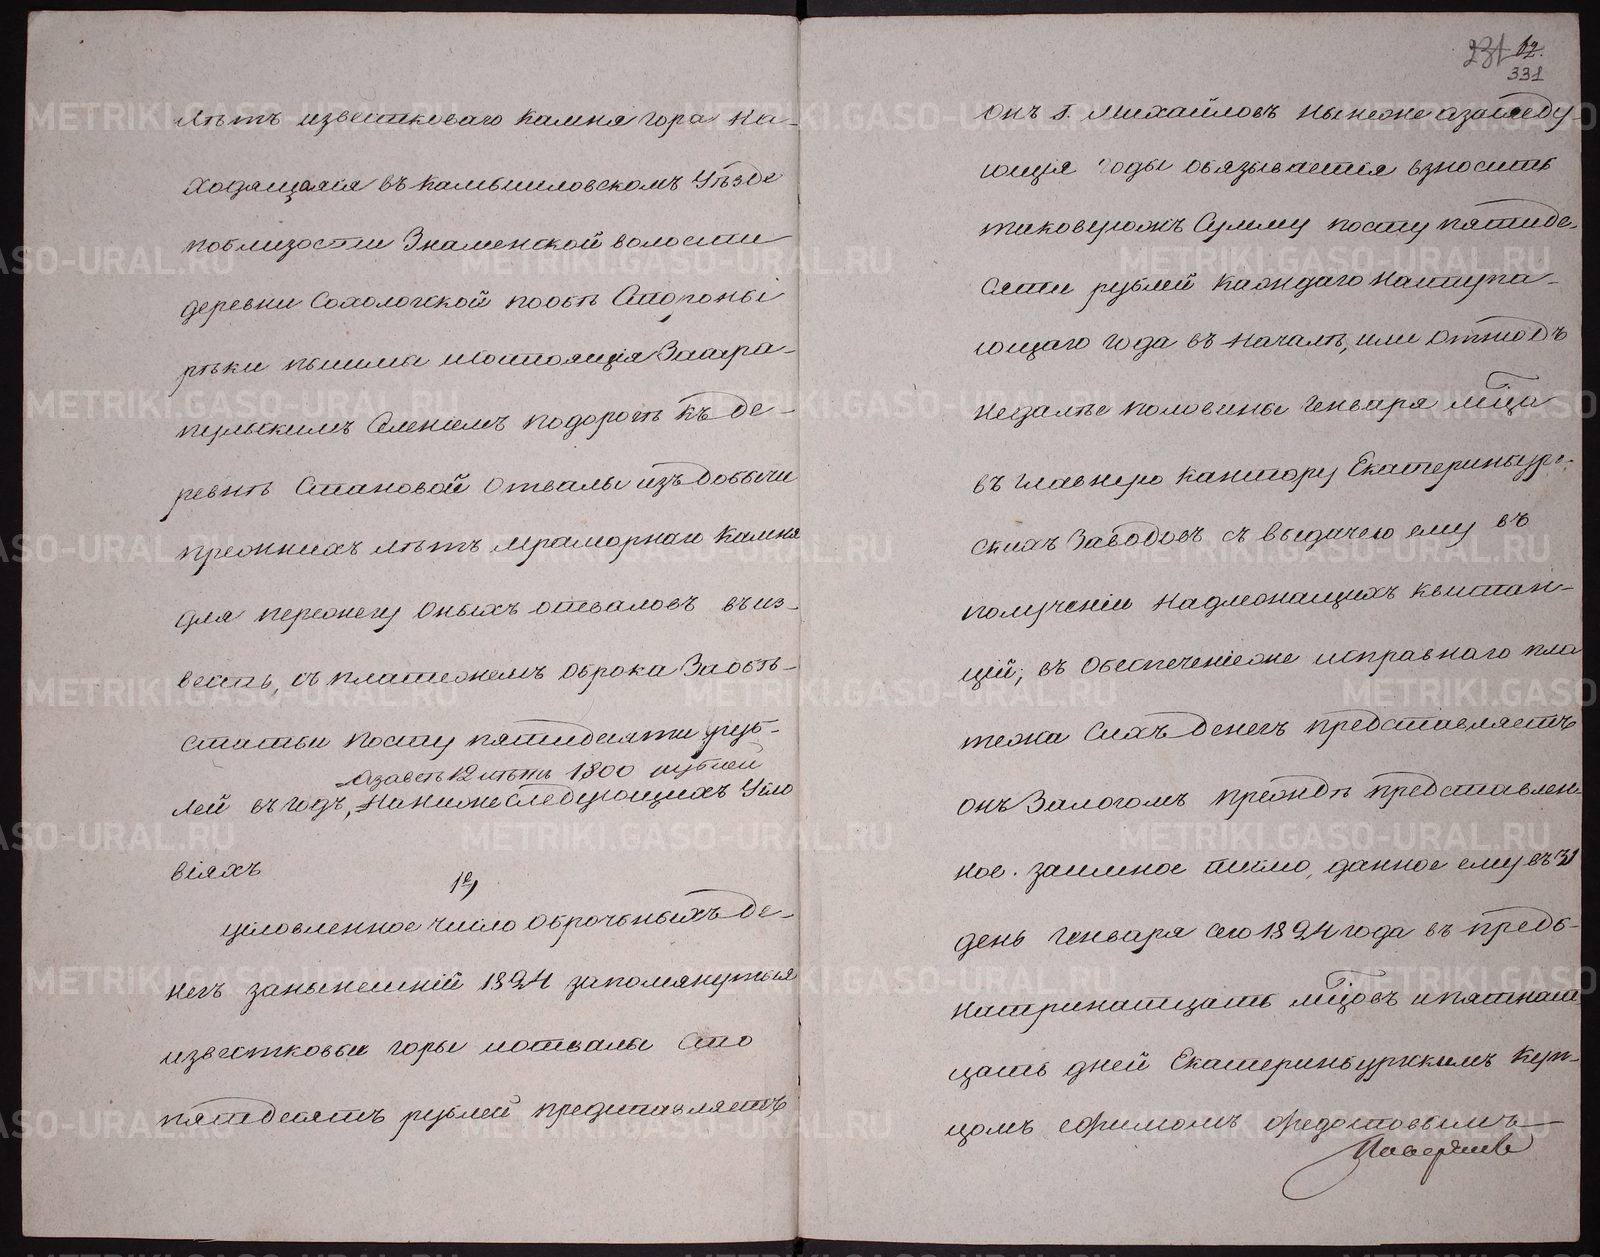 лѣтъ известковаго камня гора на-
ходящаяся въ Камышловскомъ Уѣзде
поблизости Знаменской волости
деревни Сохологской пообѣ Стороны
рѣки пышмы исостоящія Заира-
пульскимъ Селеніемъ подорогѣ къ де-
ревнѣ Становой отвалы изъ добычи
прежнихъ лѣтъ мраморнаго камня
для пережегу оныхъ отваловъ въ из-
весть, съ платежемъ оброка Заобѣ-
статьи посту пятидесяти руб-
азавсѣ 12 лѣтъ 1800 рублей
лей въ годъ, на нижеследующихъ Усло
віяхъ
1е,
условленное число оброчныхъ де-
негъ занынешній 1824 запомянутыя
известковы горы иотвалы сто
пятдесятъ рублей представляетъ
231 12.
331
Онъ Г. Михайловъ ныне же азаследу-
ющія годы обязывается взносить
таковуюжъ Сумму посту пятиде-
сяти рублей каждаго наступа-
ющаго года въ началѣ, или оттодъ
недалѣе половины Генваря мѣца
въ главную кантору Екатеринбург-
скихъ Заводовъ съ выдачею ему въ
полученіи надлежащихъ квитан-
цій; въ обеспеченіеже исправнаго пла
тежа Сихъ денегъ представляетъ
онъ Залогомъ прежде представлен-
ное заимное писмо, данное ему въ 31
день Генваря сего 1824 года въ предъ-
натринатцать мѣцовъ ипятнат
цать дней Екатеринбургскимъ Куп-
цомъ ефимомъ Федотовымъ